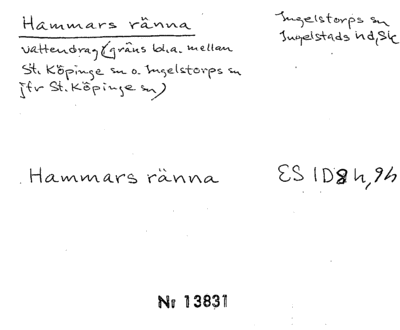 Hammars ränna
Ingelstorps sn
Ingelstads hd, Sk
vattendrag (gräns bl.a. mellan
St. Köpinge sn o. Ingelstorps sn
jfr St. Köpinge sn)
Hammars ränna
ES 1D8h,9h
Nr 13831